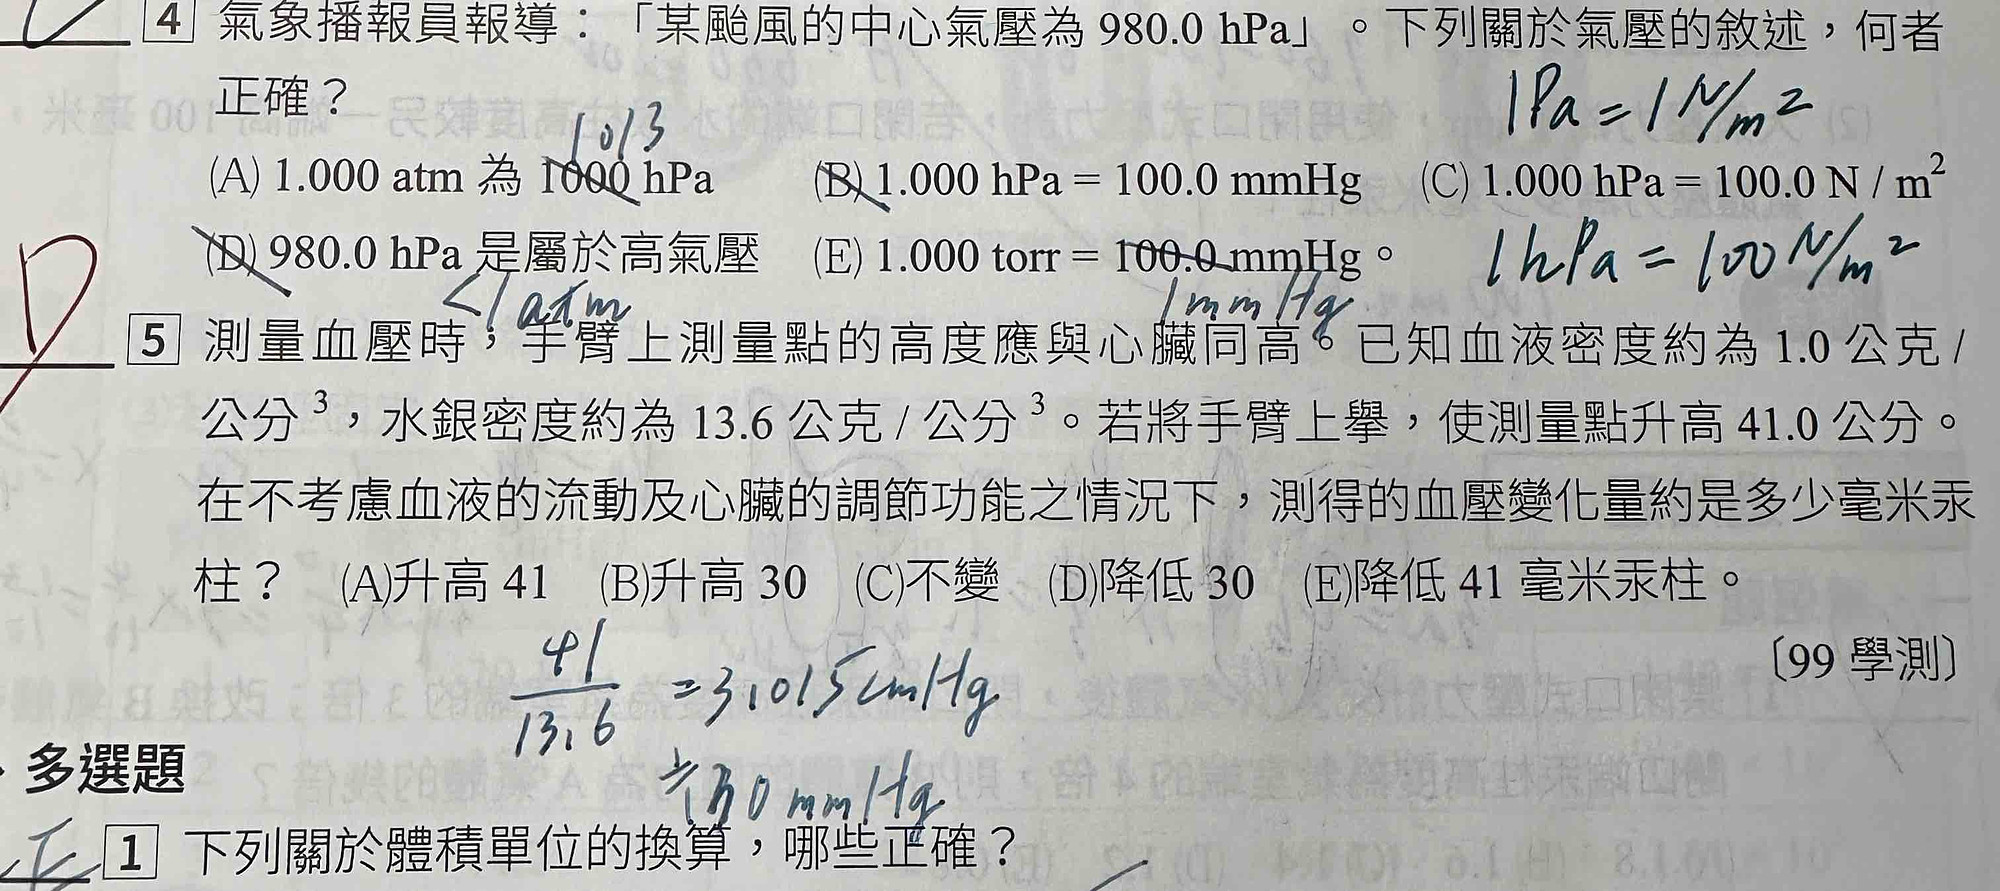 4 氣象播報員報導：「某颱風的中心氣壓為 980.0 hPa」。下列關於氣壓的敘述，何者
正確？
1Pa = 1 N/m2
1013
(A) 1.000 atm 為 1000 hPa (B) 1.000 hPa = 100.0 mmHg (C) 1.000 hPa = 100.0 N / m2
(D) 980.0 hPa 是屬於高氣壓 (E) 1.000 torr = 100.0 mmHg。
1hPa = 100 N/m2
<1 atm
1mmHg
D
5 測量血壓時，手臂上測量點的高度應與心臟同高。已知血液密度約為 1.0 公克 /
公分3，水銀密度約為 13.6 公克 / 公分3。若將手臂上舉，使測量點升高 41.0 公分。
在不考慮血液的流動及心臟的調節功能之情況下，測得的血壓變化量約是多少毫米汞
柱？ (A)升高 41 (B)升高 30 (C)不變 (D)降低 30 (E)降低 41 毫米汞柱。
〔99 學測〕
41/13.6 = 3.015cmHg
≒30mmHg
多選題
1 下列關於體積單位的換算，哪些正確？